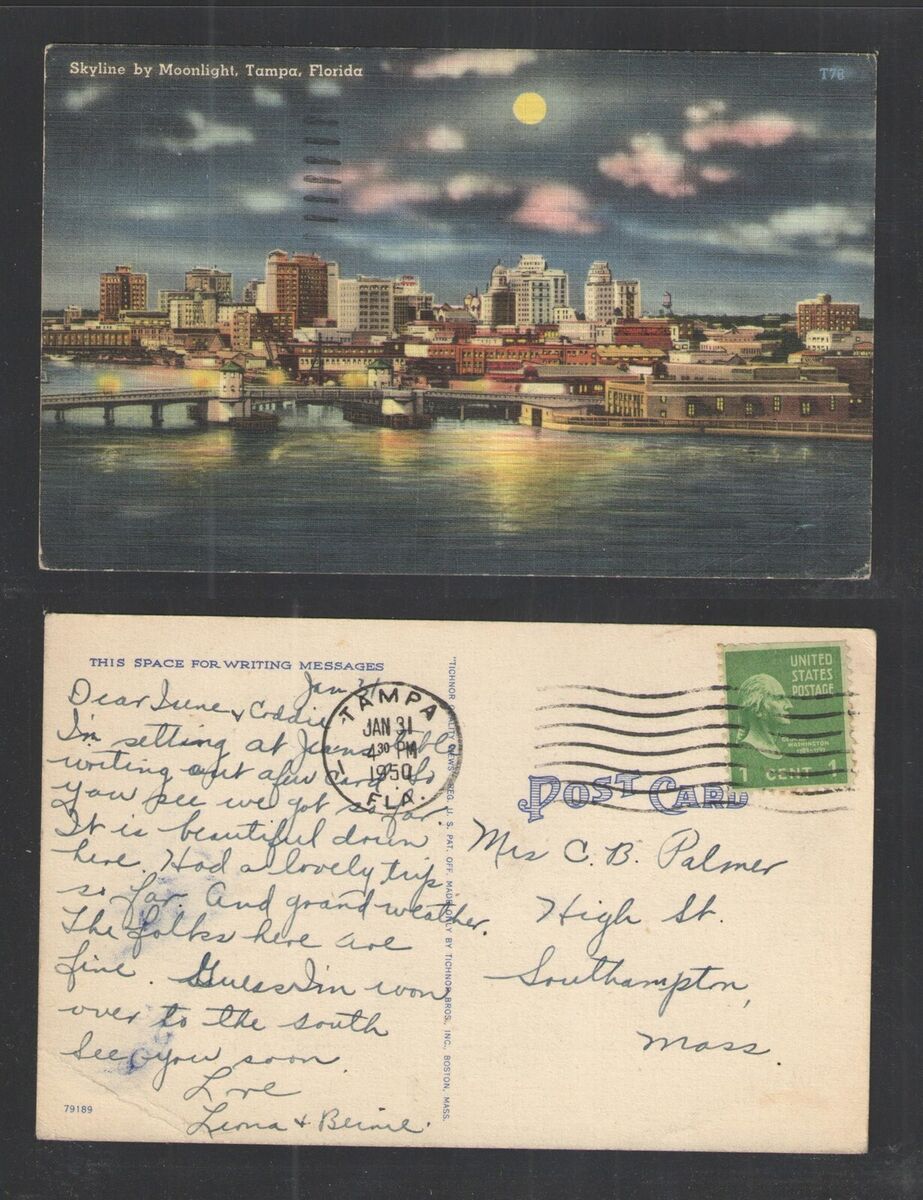 Skyline by Moonlight, Tampa, Florida
T78
THIS SPACE FOR WRITING MESSAGES
Jan 31
Dear Irene &
I'm setting at Jeans table
writing out a few cards. So
you see we got so far.
It is beautiful down
here. Had a lovely trip
so far. And grand weather.
The folks here are
fine. Guess I'm won
over to the south
See you soon
Love
Leona &
79189
TAMPA
JAN 31
4 30 PM
1950
FLA.
"TICHNOR QUALITY VIEWS," REG. U. S. PAT. OFF. MADE ONLY BY TICHNOR BROS., INC., BOSTON, MASS.
UNITED
STATES
POSTAGE
WASHINGTON
1 CENT 1
POST CARD
Mrs C. B. Palmer
High St.
Southampton,
Mass.